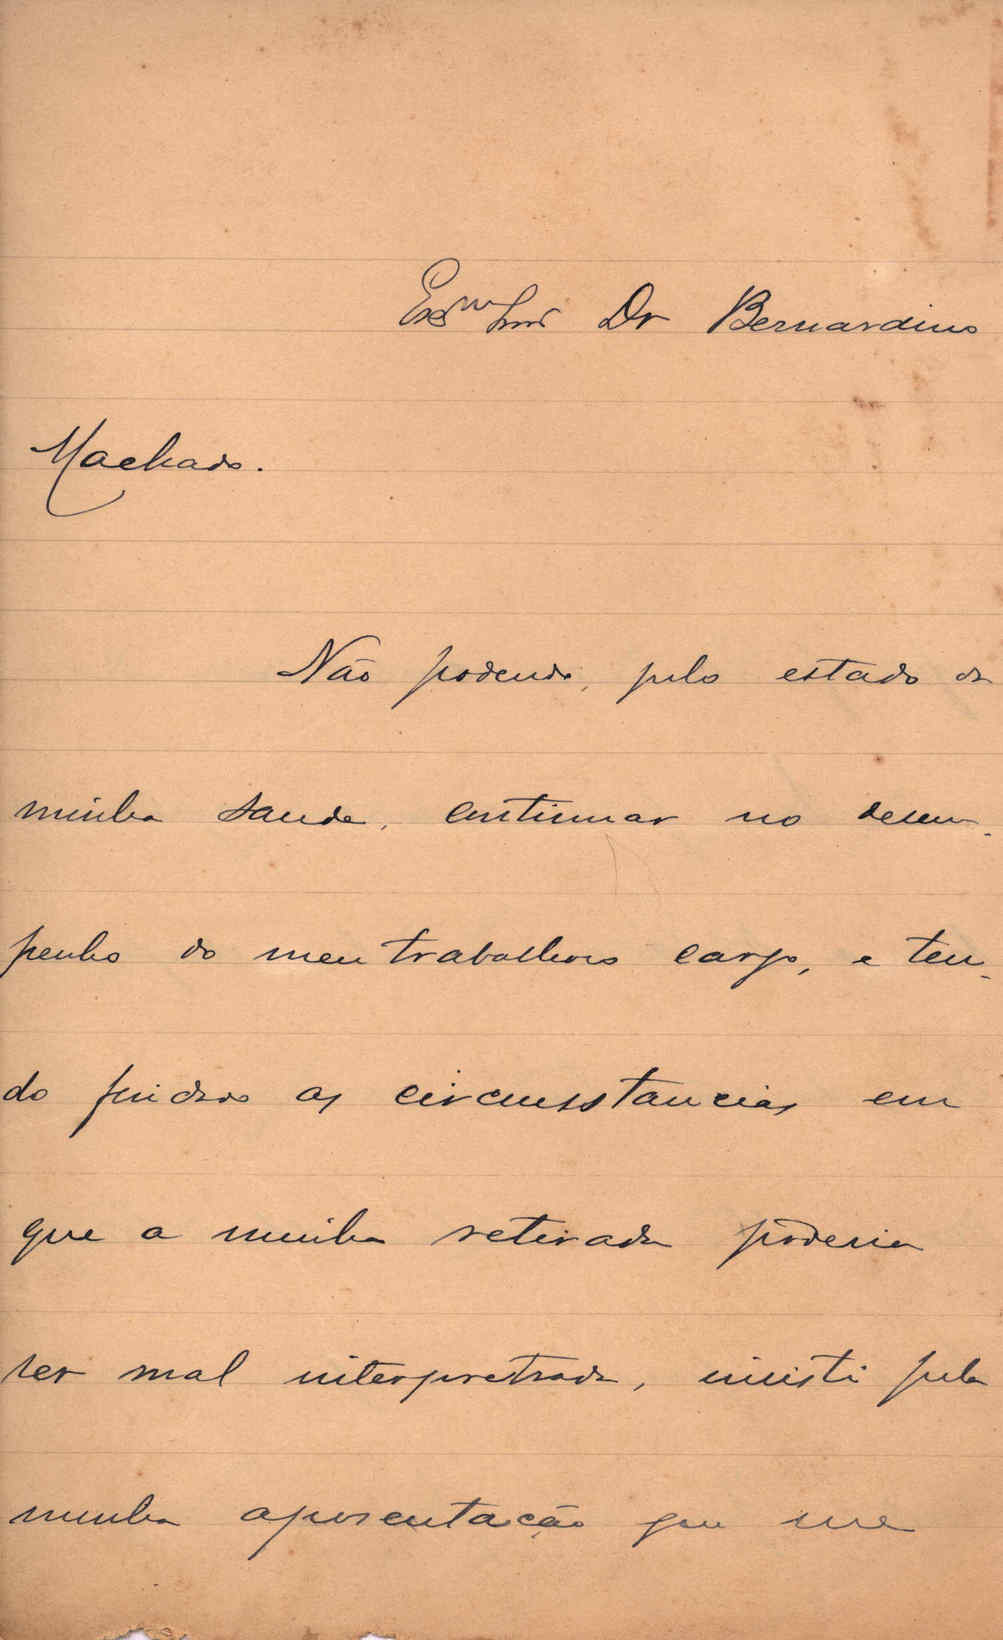 Exmo Snr Dr Bernardino
Machado.
Não podendo, pelo estado da
minha saude, continuar no desem-
penho do meu trabalhoso cargo, e ten-
do findado as circumstancias em
que a minha retirada poderia
ser mal interpretrada, insisti pela
minha aposentação que me